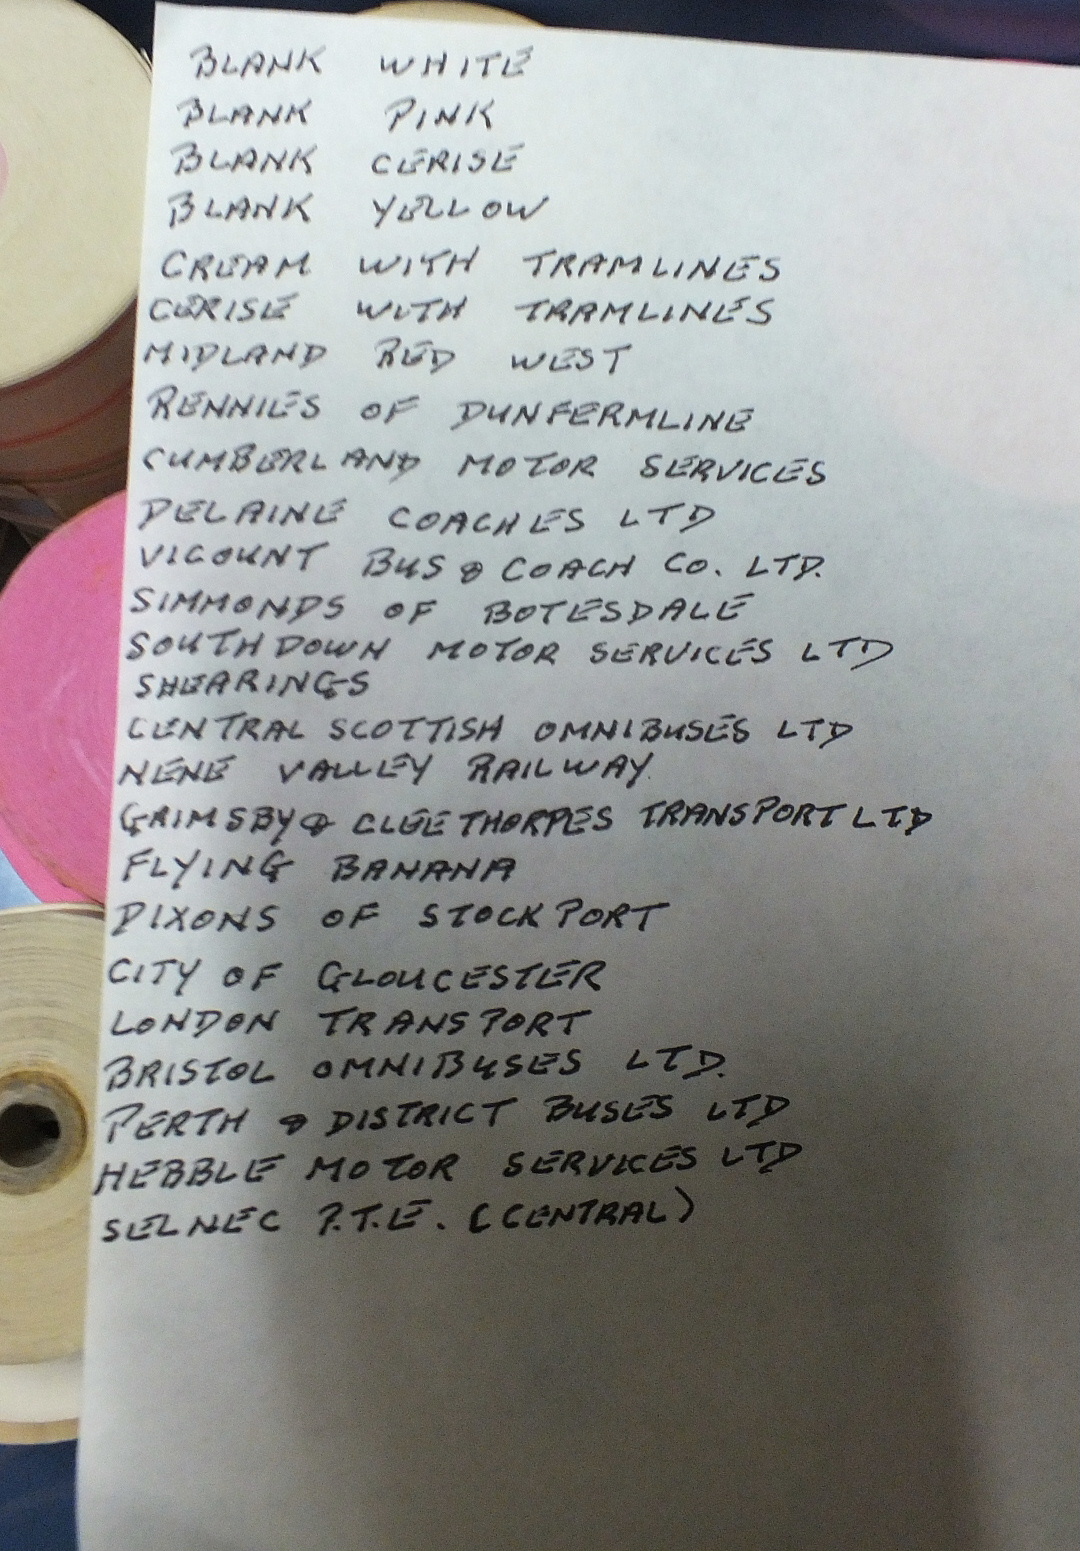 BLANK WHITE
BLANK PINK
BLANK CERISE
BLANK YELLOW
CREAM WITH TRAMLINES
CERISE WITH TRAMLINES
MIDLAND RED WEST
RENNIES OF DUNFERMLINE
CUMBERLAND MOTOR SERVICES
DELAINE COACHES LTD
VICOUNT BUS & COACH CO. LTD.
SIMMONDS OF BOTESDALE
SOUTHDOWN MOTOR SERVICES LTD
SHEARINGS
CENTRAL SCOTTISH OMNIBUSES LTD
NENE VALLEY RAILWAY
GRIMSBY & CLEETHORPES TRANSPORT LTD
FLYING BANANA
DIXONS OF STOCKPORT
CITY OF GLOUCESTER
LONDON TRANSPORT
BRISTOL OMNIBUSES LTD.
PERTH & DISTRICT BUSES LTD
HEBBLE MOTOR SERVICES LTD
SELNEC P.T.E. (CENTRAL)